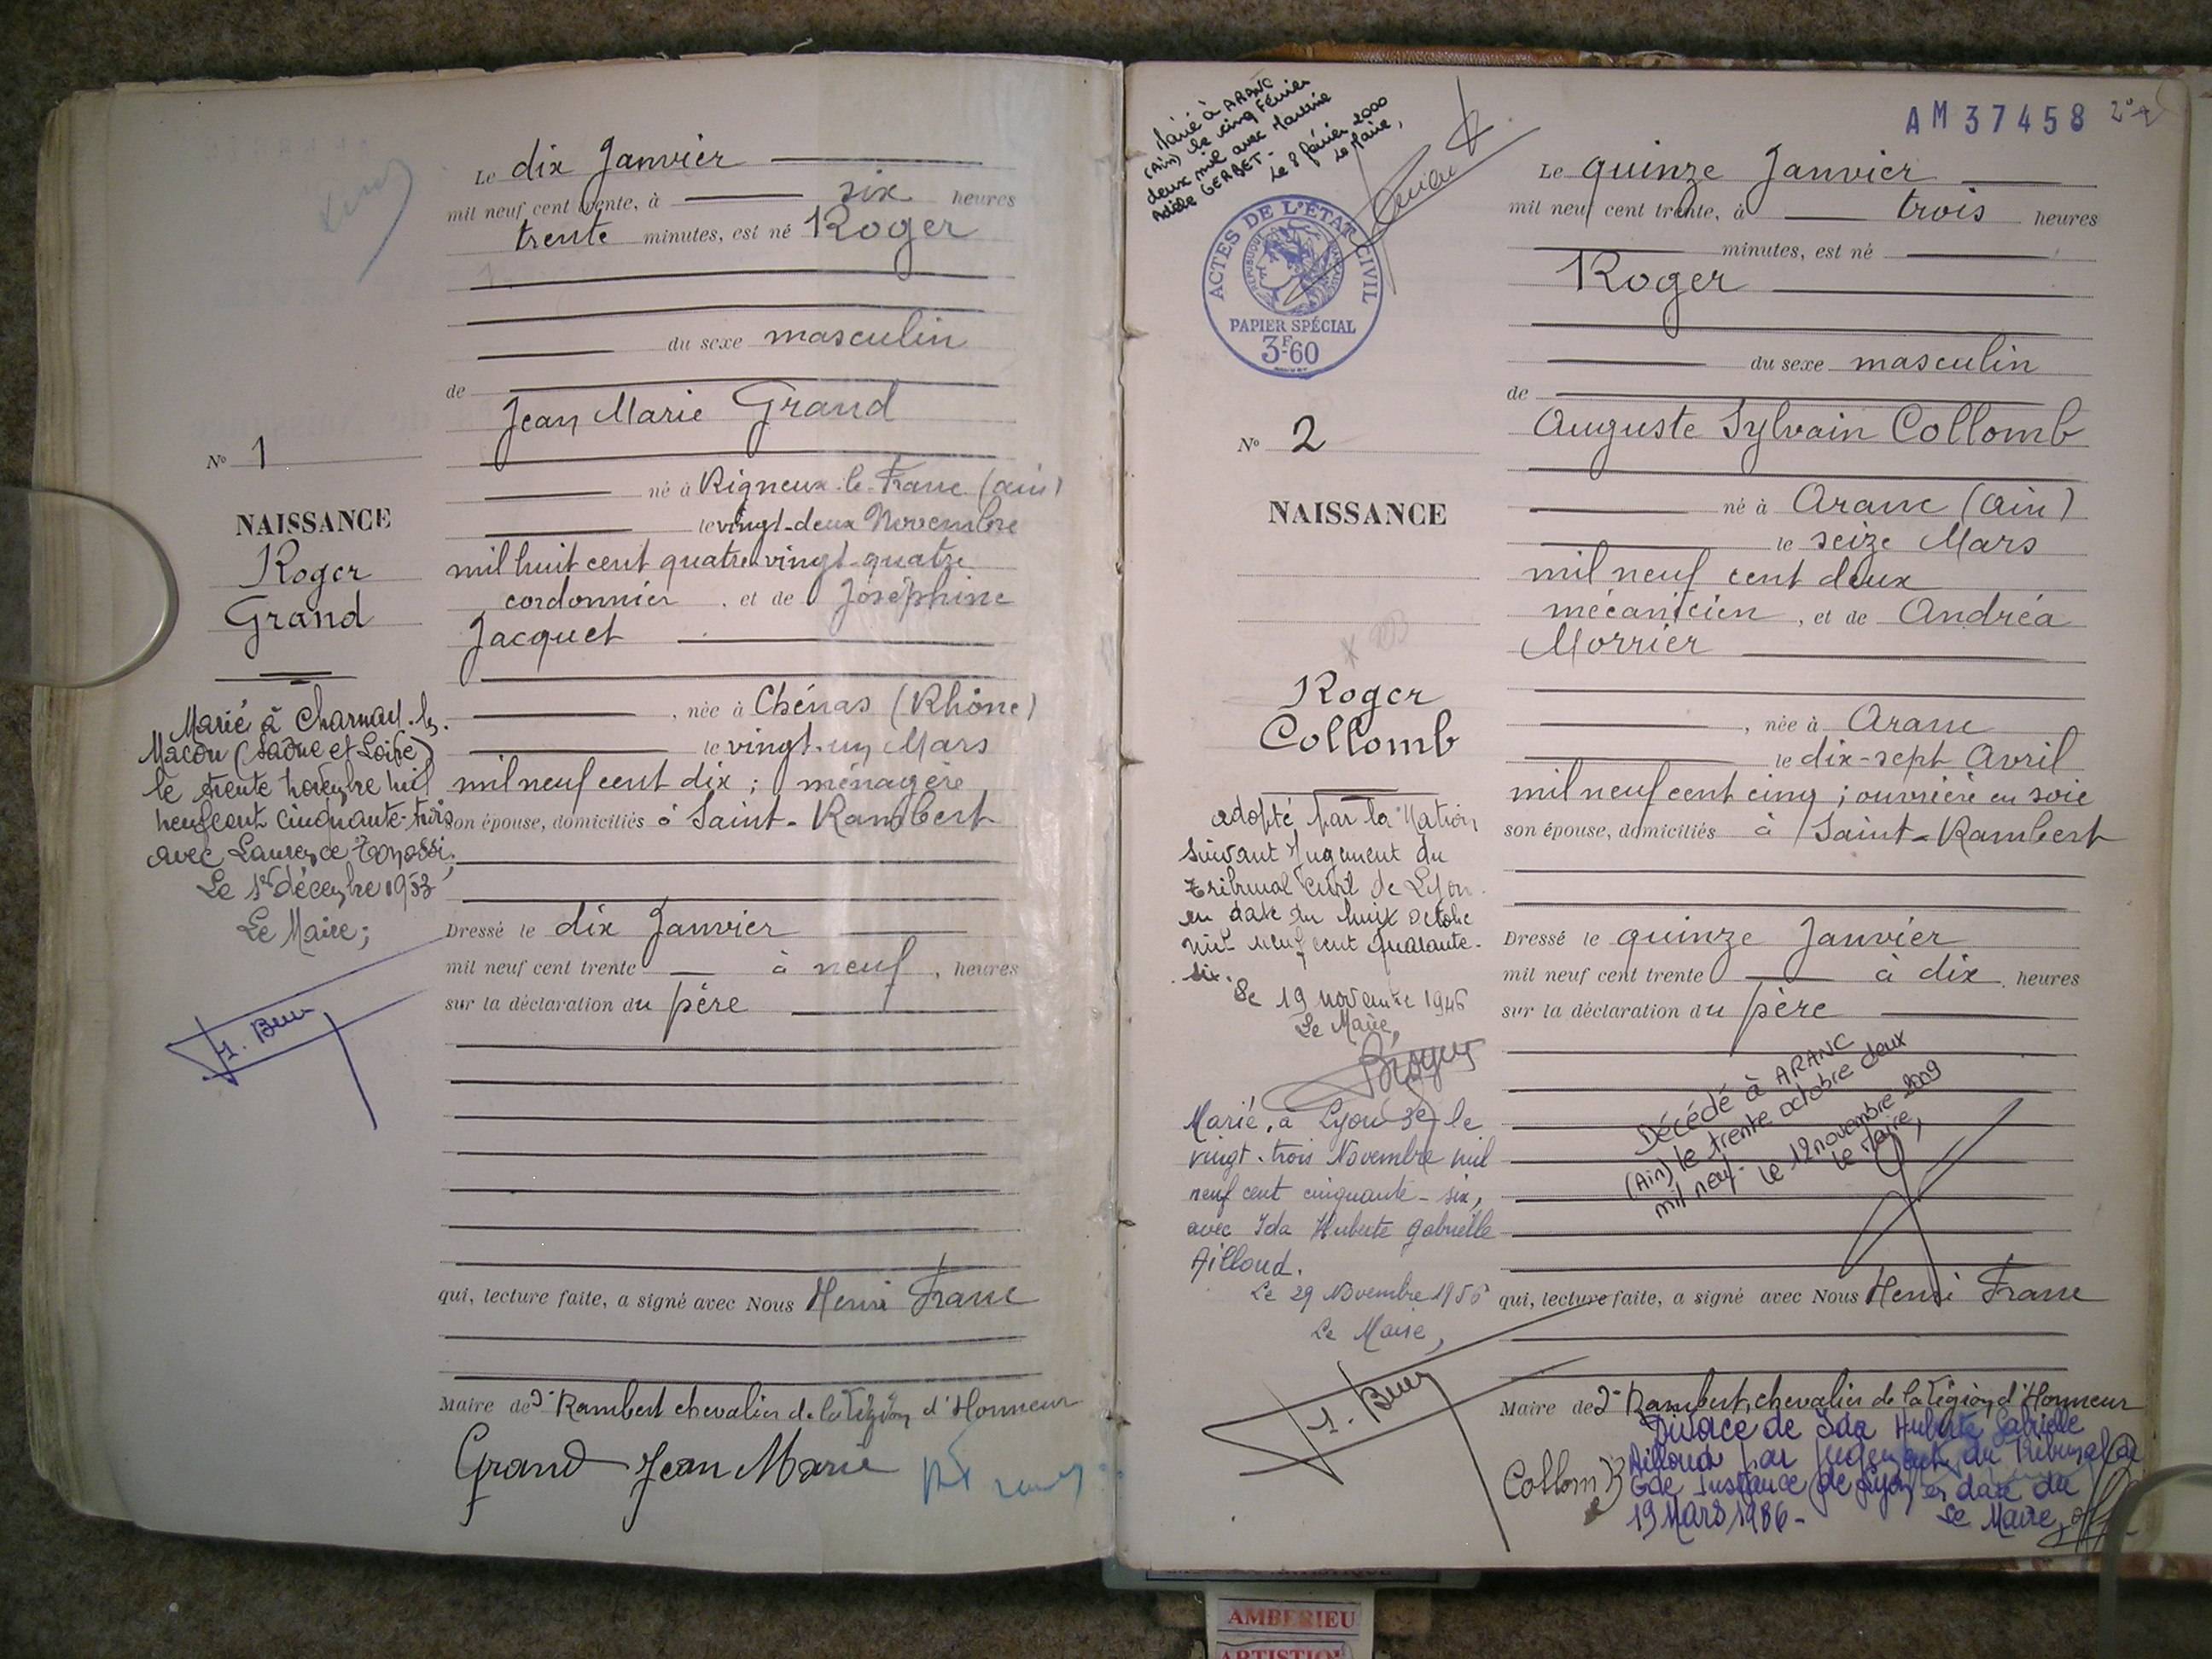 Le dix Janvier
mil neuf cent trente, à six heures
trente minutes, est né Roger
du sexe masculin
de
Jean Marie Grand
né à Rigneux-le-Franc (ain)
le vingt-deux Novembre
mil huit cent quatre-vingt-quatre
cordonnier, et de Joséphine
Jacquet
, née à Chénas (Rhône)
le vingt-un Mars
mil neuf cent dix ; ménagère
son épouse, domiciliés à Saint-Rambert
Dressé le dix Janvier
mil neuf cent trente à neuf, heures
sur la déclaration du père
qui, lecture faite, a signé avec Nous Henri Franc
Maire de St Rambert chevalier de la légion d'Honneur
Grand Jean Marie
No 1
NAISSANCE
Roger
Grand
Marié à Charnay-les-
Macon (Saône et Loire)
le trente novembre mil
neuf cent cinquante-trois
avec Laurence
Le 1er décembre 1953
Le Maire ;
Marié à ARANC
(Ain) le cinq Février
deux mil avec Martine
Adèle GERBET-
Le 8 février 2000
Le Maire,
ACTES DE L'ÉTAT CIVIL
RÉPUBLIQUE FRANÇAISE
PAPIER SPÉCIAL
3F60
AM 37458
No 2
NAISSANCE
Roger
Collomb
adopté par la Nation
suivant jugement du
tribunal civil de Lyon
en date du huit octobre
mil neuf cent quarante-
six.
Le 19 novembre 1946
Le Maire,
Marié, à Lyon 3e, le
vingt-trois Novembre mil
neuf cent cinquante-six,
avec Ida Huberte Gabrielle
Ailloud.
Le 29 Novembre 1956
Le Maire,
Le quinze Janvier
mil neuf cent trente, à trois heures
minutes, est né
Roger
du sexe masculin
de
Auguste Sylvain Collomb
né à Aranc (Ain)
le seize Mars
mil neuf cent deux
mécanicien, et de Andréa
Morrier
, née à Aranc
le dix-sept Avril
mil neuf cent cinq ; ouvrière en soie
son épouse, domiciliés à Saint-Rambert
Dressé le quinze Janvier
mil neuf cent trente à dix, heures
sur la déclaration du père
Décédé à ARANC
(Ain) le trente octobre deux
mil neuf- Le 12 novembre 2009
Le Maire,
qui, lecture faite, a signé avec Nous Henri Franc
Maire de St Rambert, chevalier de la légion d'Honneur
Divorcé de Ida Huberte Gabrielle
Ailloud par jugement du Tribunal de
Gde Instance de Lyon en date du
19 Mars 1986-
Le Maire,
Collomb
AMBERIEU